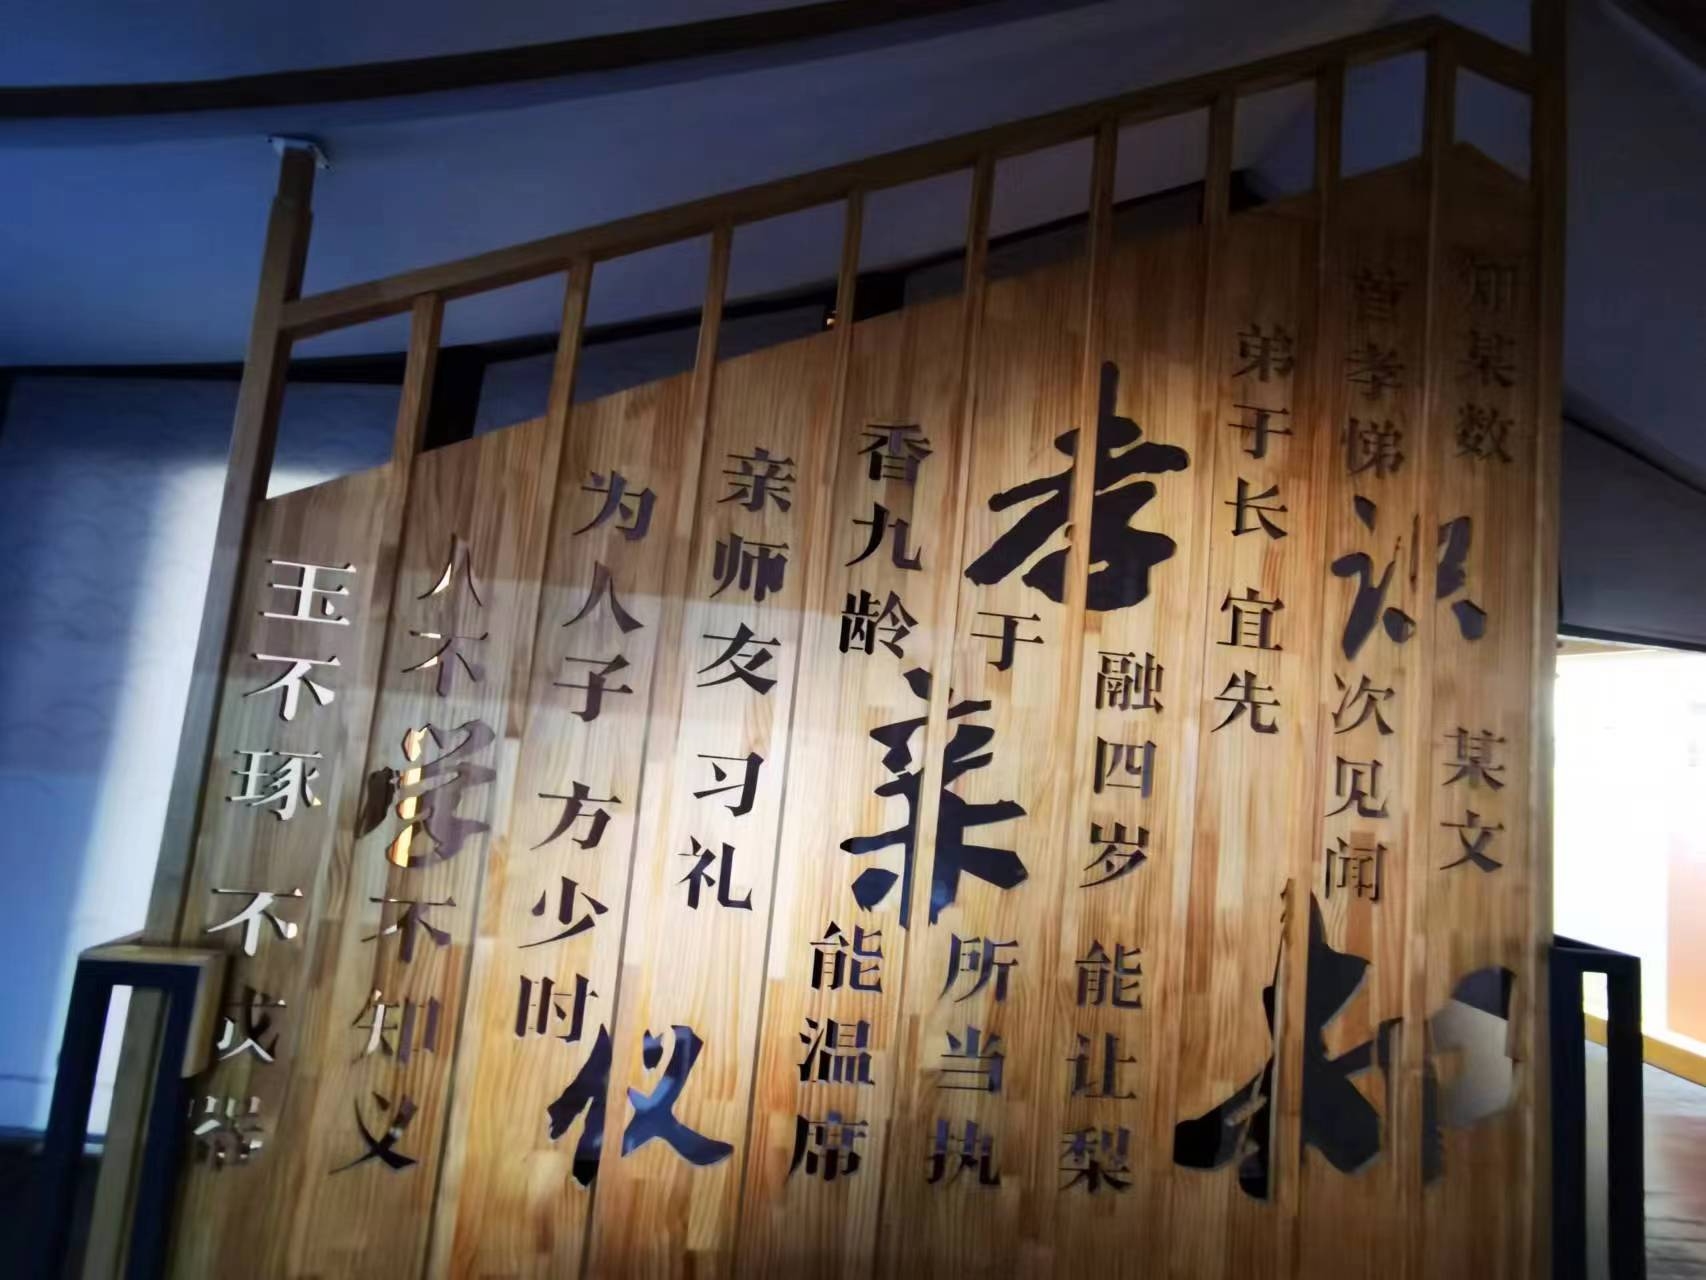 玉不琢 不成器
人不学 不知义
为人子 方少时
亲师友 习礼仪
香九龄 能温席
孝于亲 所当执
融四岁 能让梨
弟于长 宜先知
首孝悌 次见闻
知某数 识某文